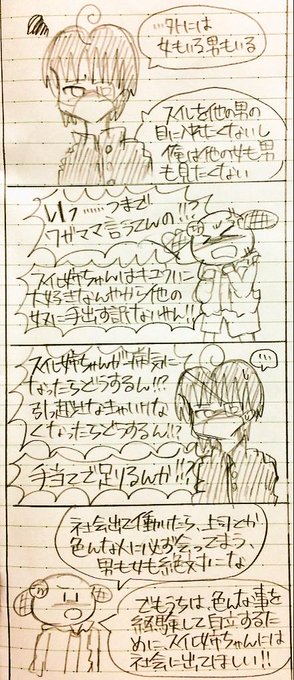 …外には
女もいる男もいる
スイレを他の男の
目に入れたくないし
俺は他の女も男
も見たくない
いっ……つまで
ワガママ言うてんの!!?
スイ姉ちゃんは
大好きなんやから他の
女に手出す訳ないやん!!
スイ姉ちゃんが病気に
なったらどうするん!?
引っ越さなきゃいけな
くなったらどうするん!?
手当てで足りるんか!!?
…
社会出て働いたら、上司とか
色んな人に必ず会ってまう、
男も女も絶対にな
でもうちは、色んな事を
経験して自立するた
めに、スイ姉ちゃんには
社会に出てほしい!!